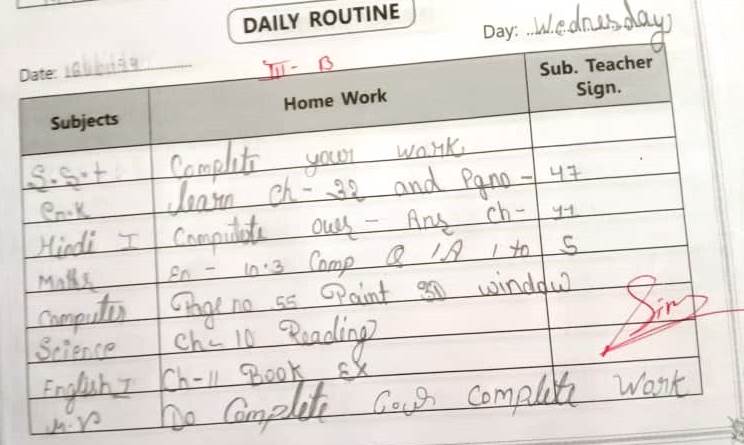 DAILY ROUTINE
Day: Wednesday
Date:
III - B
Subjects Home Work Sub. Teacher Sign.
S.S.t Complete your work.
G.K learn ch - 32 and Pgno - 47
Hindi I Ques - Ans ch - 11
Maths En - 10.3 Comp Q 1A 1 to 5
Computer Page no 55 Paint 3D window
Science Ch - 10 Reading
English I Ch-11 Book Ex
Do Complete complete Work